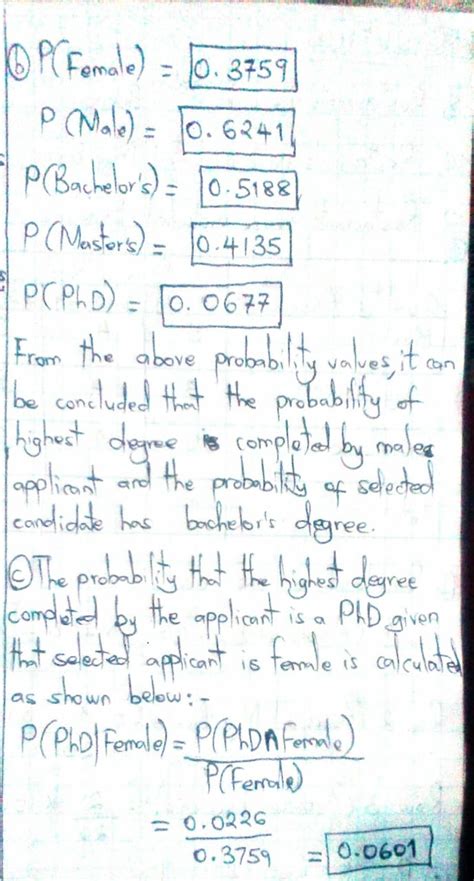 ⓑ P(Female) = 0.3759
P(Male) = 0.6241
P(Bachelor's) = 0.5188
P(Master's) = 0.4135
P(PhD) = 0.0677
From the above probability values, it can
be concluded that the probability of
highest degree is completed by males
applicant and the probability of selected
candidate has bachelor's degree.
ⓒ The probability that the highest degree
completed by the applicant is a PhD given
that selected applicant is female is calculated
as shown below:-
P(PhD|Female) = P(PhD∩Female)
P(Female)
= 0.0226
0.3759 = 0.0601